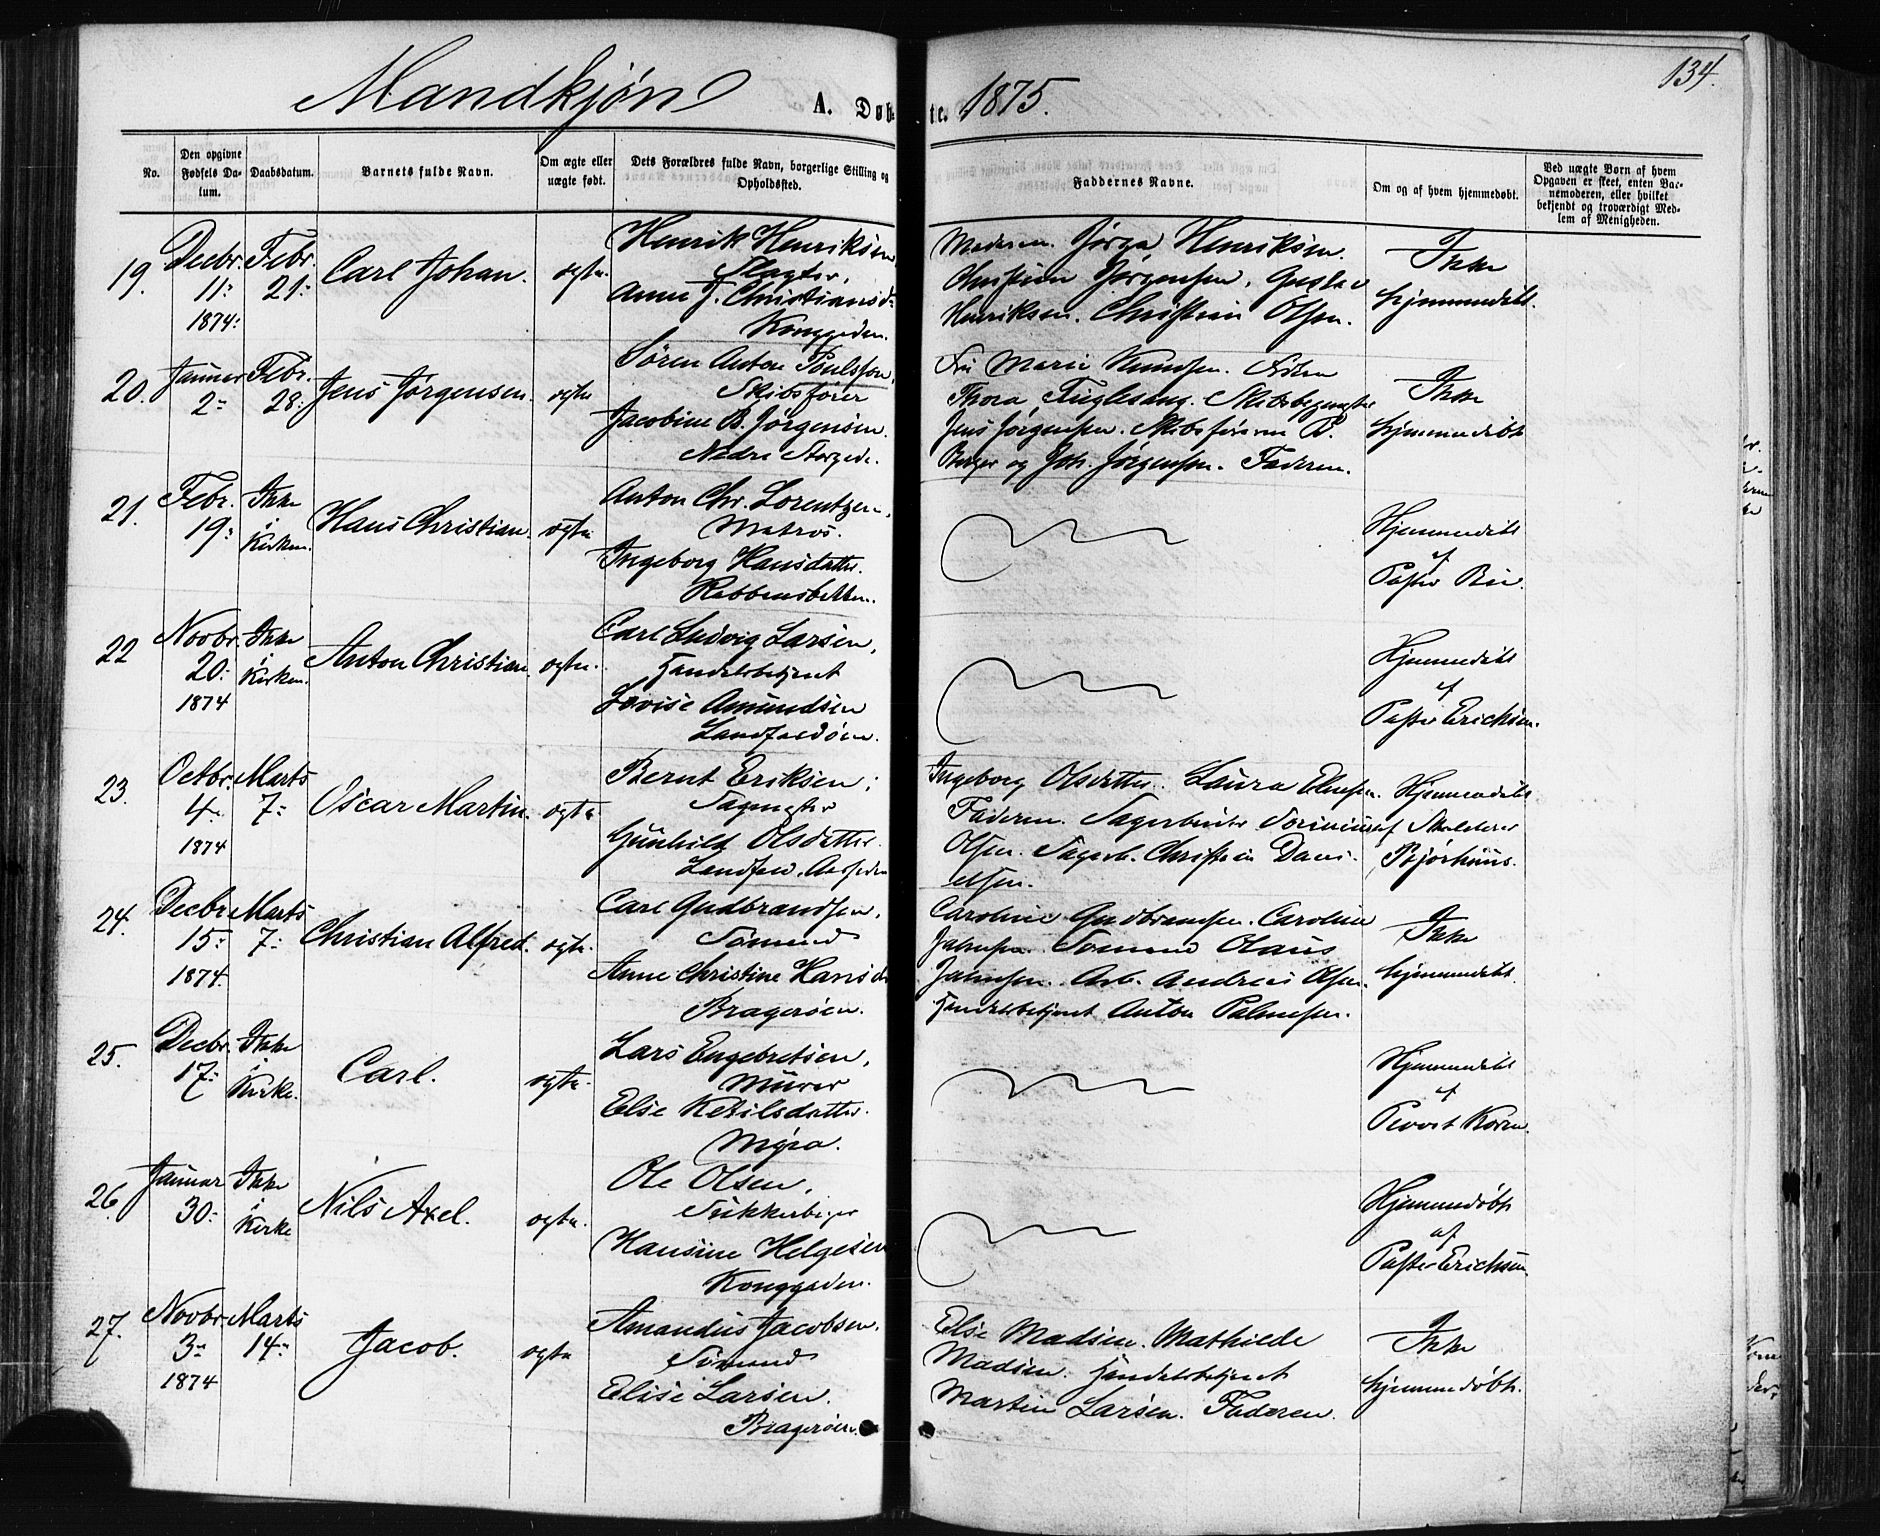 Mandkjøn A. Døbte. 1875. 134.
No.
Den opgivne Fødsels Datum.
Daabsdatum.
Barnets fulde Navn.
Om ægte eller uægte født.
Dets Forældres fulde Navn, borgerlige Stilling og Opholdssted.
Faddernes Navne.
Om og af hvem hjemmedøbt.
Ved uægte Børn af hvem Opgaven er skeet, enten Barnemoderen, eller hvilket bekjendt og troværdigt Medlem af Menigheden.
19. Decbr. 11: 1874: Febr. 21: Carl Johan. ægte.
Henrik Henriksen
Slagter,
Anne J. Christiansd:
Konggaden.
Moderen. Henriksen.
Christian Jørgensen. Gustav
Henriksen. Christian Olsen.
Ikke
hjemmedøbt.
20. Januar 2: Febr. 28: Jens Jørgensen. ægte
Søren Anton Poulsson,
Skibsfører
Jacobine B. Jørgensen.
Nedre Storgade.
Marie Knudsen.
Thora Fuglesang.
Jens Jørgensen. Skibsførerne P.
Berger og Joh. Jørgensen. Faderen.
Ikke
hjemmedøbt
21. Febr. 19: Ikke i Kirken. Hans Christian. ægte
Anton Chr. Lorentzen,
Matros.
Ingeborg Hansdatter.
Hjemmedøbt
af
Pastor
22 Novbr. 20: 1874 Ikke i Kirken. Anton Christian. ægte.
Carl Ludvig Larsen,
Handelsbetjent
Lovise Amundsen
Landfaldøen.
Hjemmedøbt
af
Pastor Erichsen.
23. Octbr. 4: 1874 Marts 7: Oscar Martin. ægte
Bernt Eriksen,
Sagmester
Gunhild Olsdatter.
Landfald.
Ingeborg Olsdatter. Laura
Faderen. Sagarbeider
Olsen. Sagarb. Christian Dani-
elsen.
Hjemmedøbt
af Skolelærer
Bjørhuus.
24. Decbr. 15: 1874. Marts 7: Christian Alfred. ægte.
Carl Gudbrandsen,
Sømand
Anne Christine Hansd:
Bragerøen.
Caroline Gudbrandsen. Caroline
Sømand Olaus
Arb. Andreas Olsen.
Handelsbetjent Anton Palmesen.
Ikke
hjemmedøbt.
25. Decbr. 17: Ikke i Kirke. Carl. ægte.
Lars Engebretsen,
Murer
Else Ketilsdatter.
Myra.
Hjemmedøbt
af
Provst Koren.
26. Januar 30: Ikke i Kirke Nils Axel. ægte.
Ole Olsen,
Hansine Helgesen
Konggaden.
Hjemmedøbt
af
Pastor Erichsen.
27. Novbr. 3: 1874 Marts 14: Jacob. ægte
Amandus Jacobsen,
Sømand
Elise Larsen.
Bragerøen.
Else Madsen. Mathilde
Madsen. Handelsbetjent
Martin Larsen. Faderen.
Ikke
hjemmedøbt.